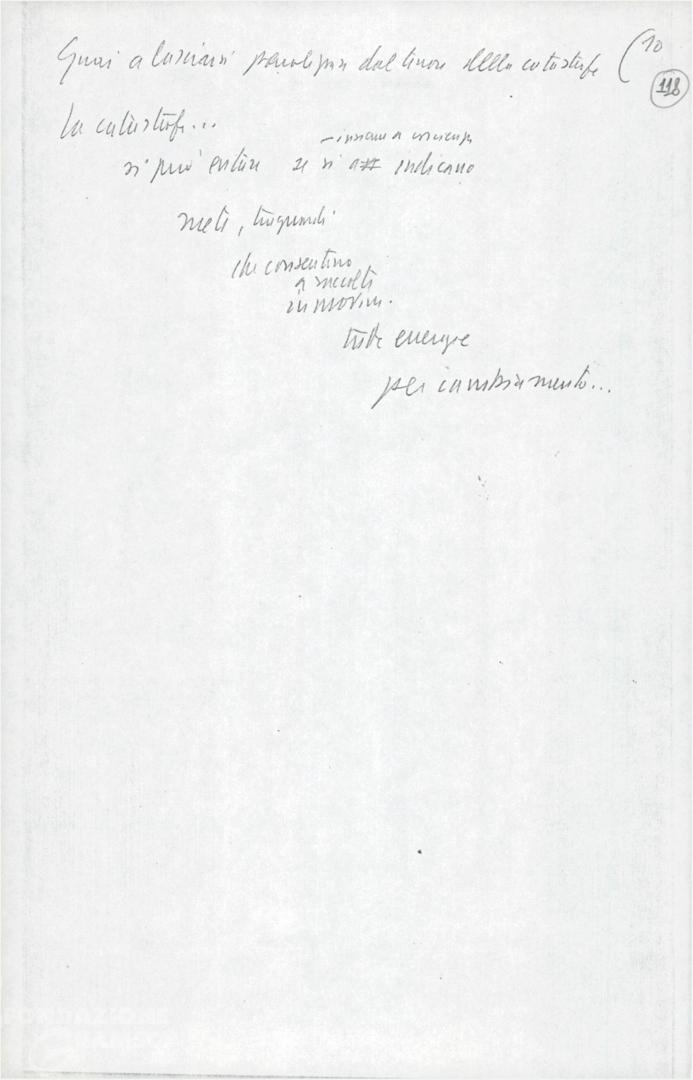 Guai a lasciarsi paralizzare dal timore della catastrofe (10
118
La catastrofe...
– insieme a coscienza
si può evitare se si indicano
mete, traguardi
che consentino
a molti
in movim.
tutte energie
per cambiamento...